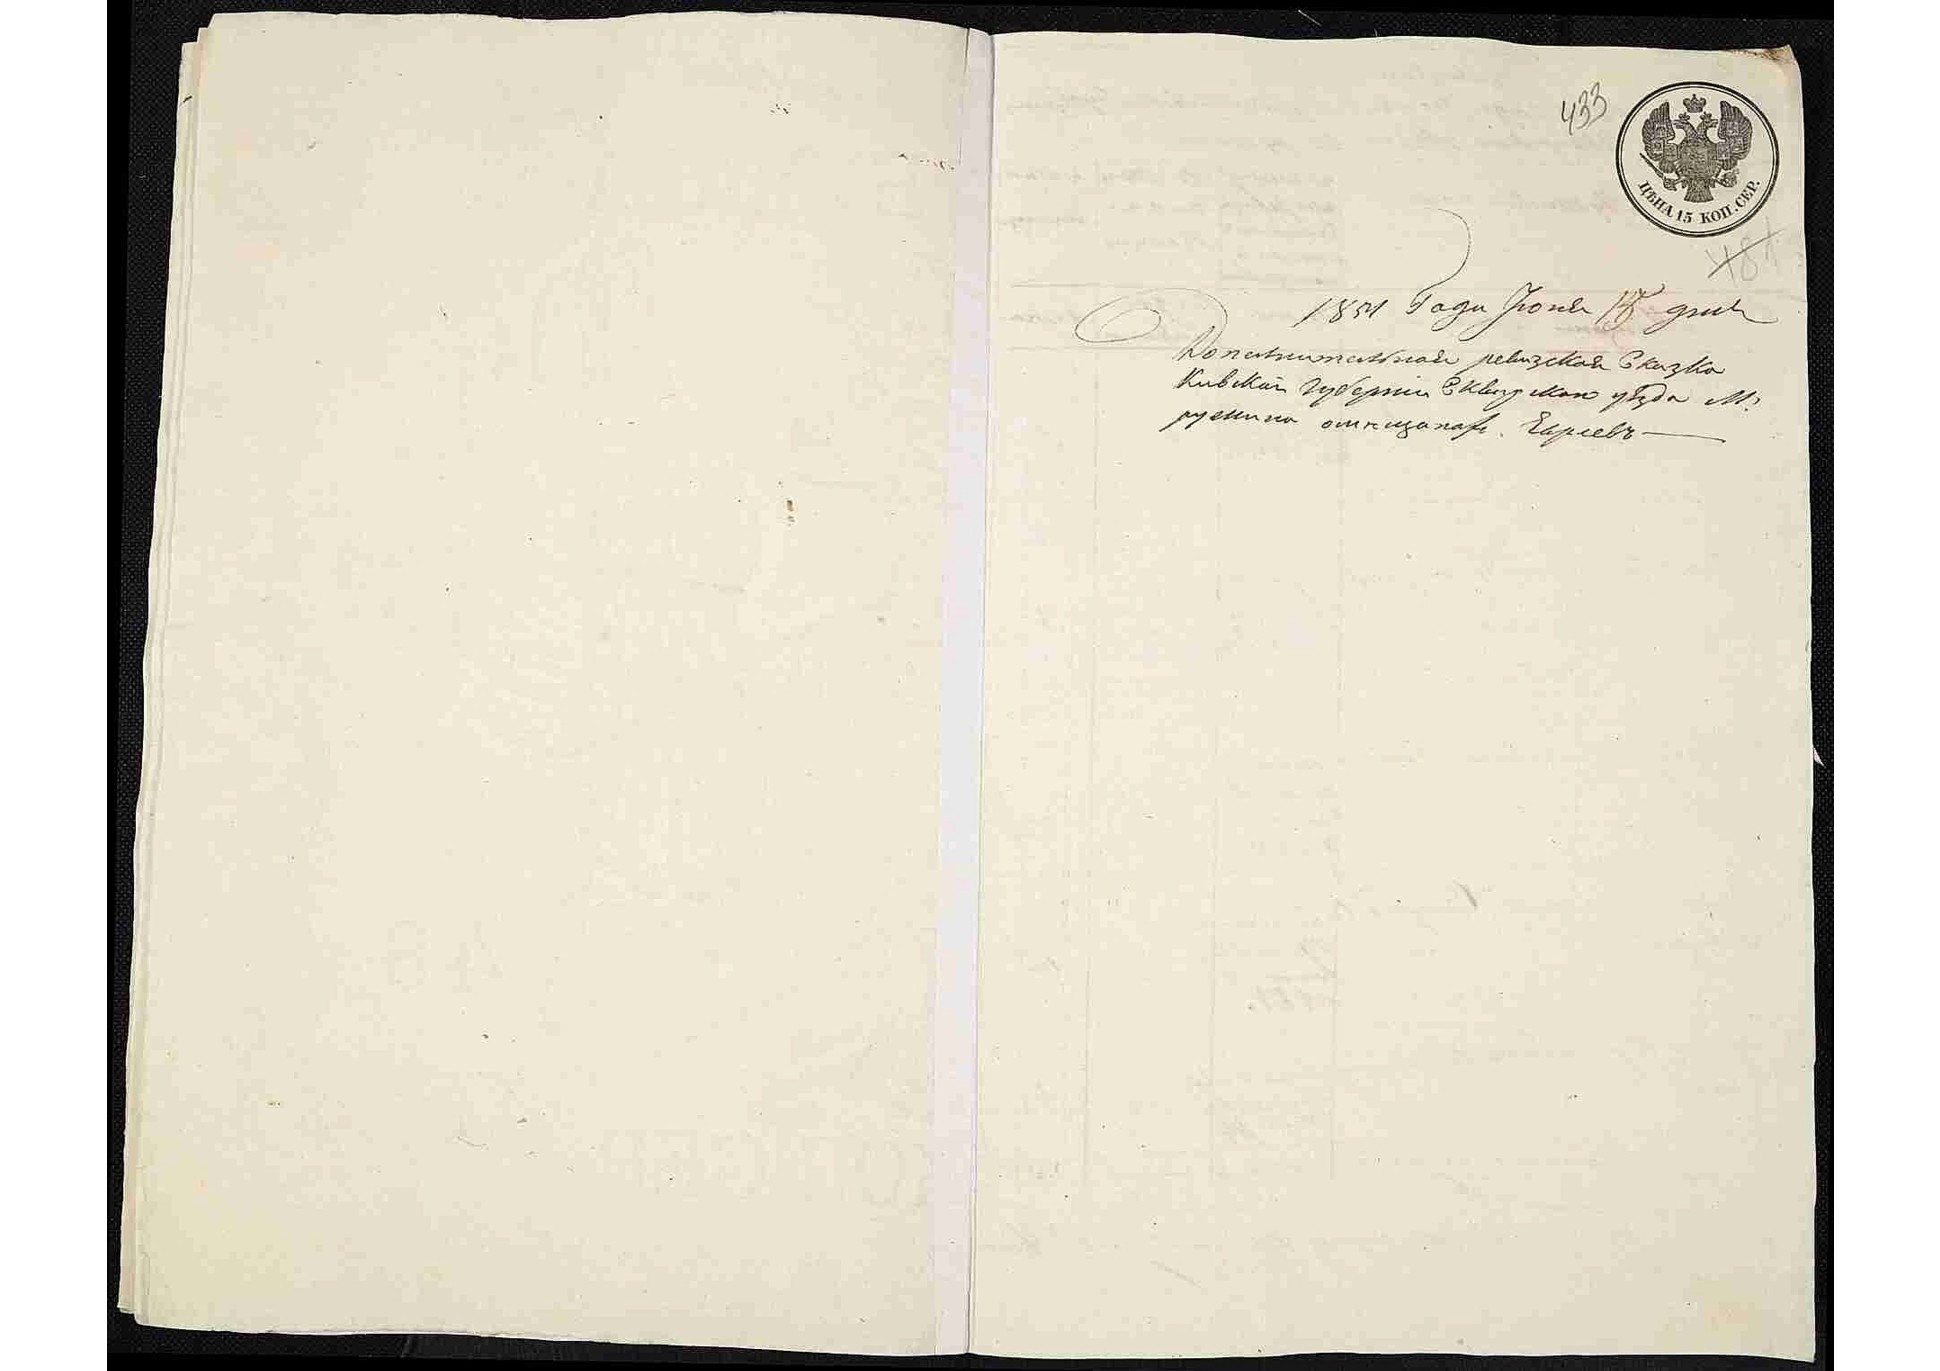 433
ЦѢНА 15 КОП. СЕР.
481
1851 Года Июня 15 дня
Дополнительная ревизская Сказка
Киевской Губерніи Сквирскаго уѣзда М.
ружина о мещанах Евреевъ